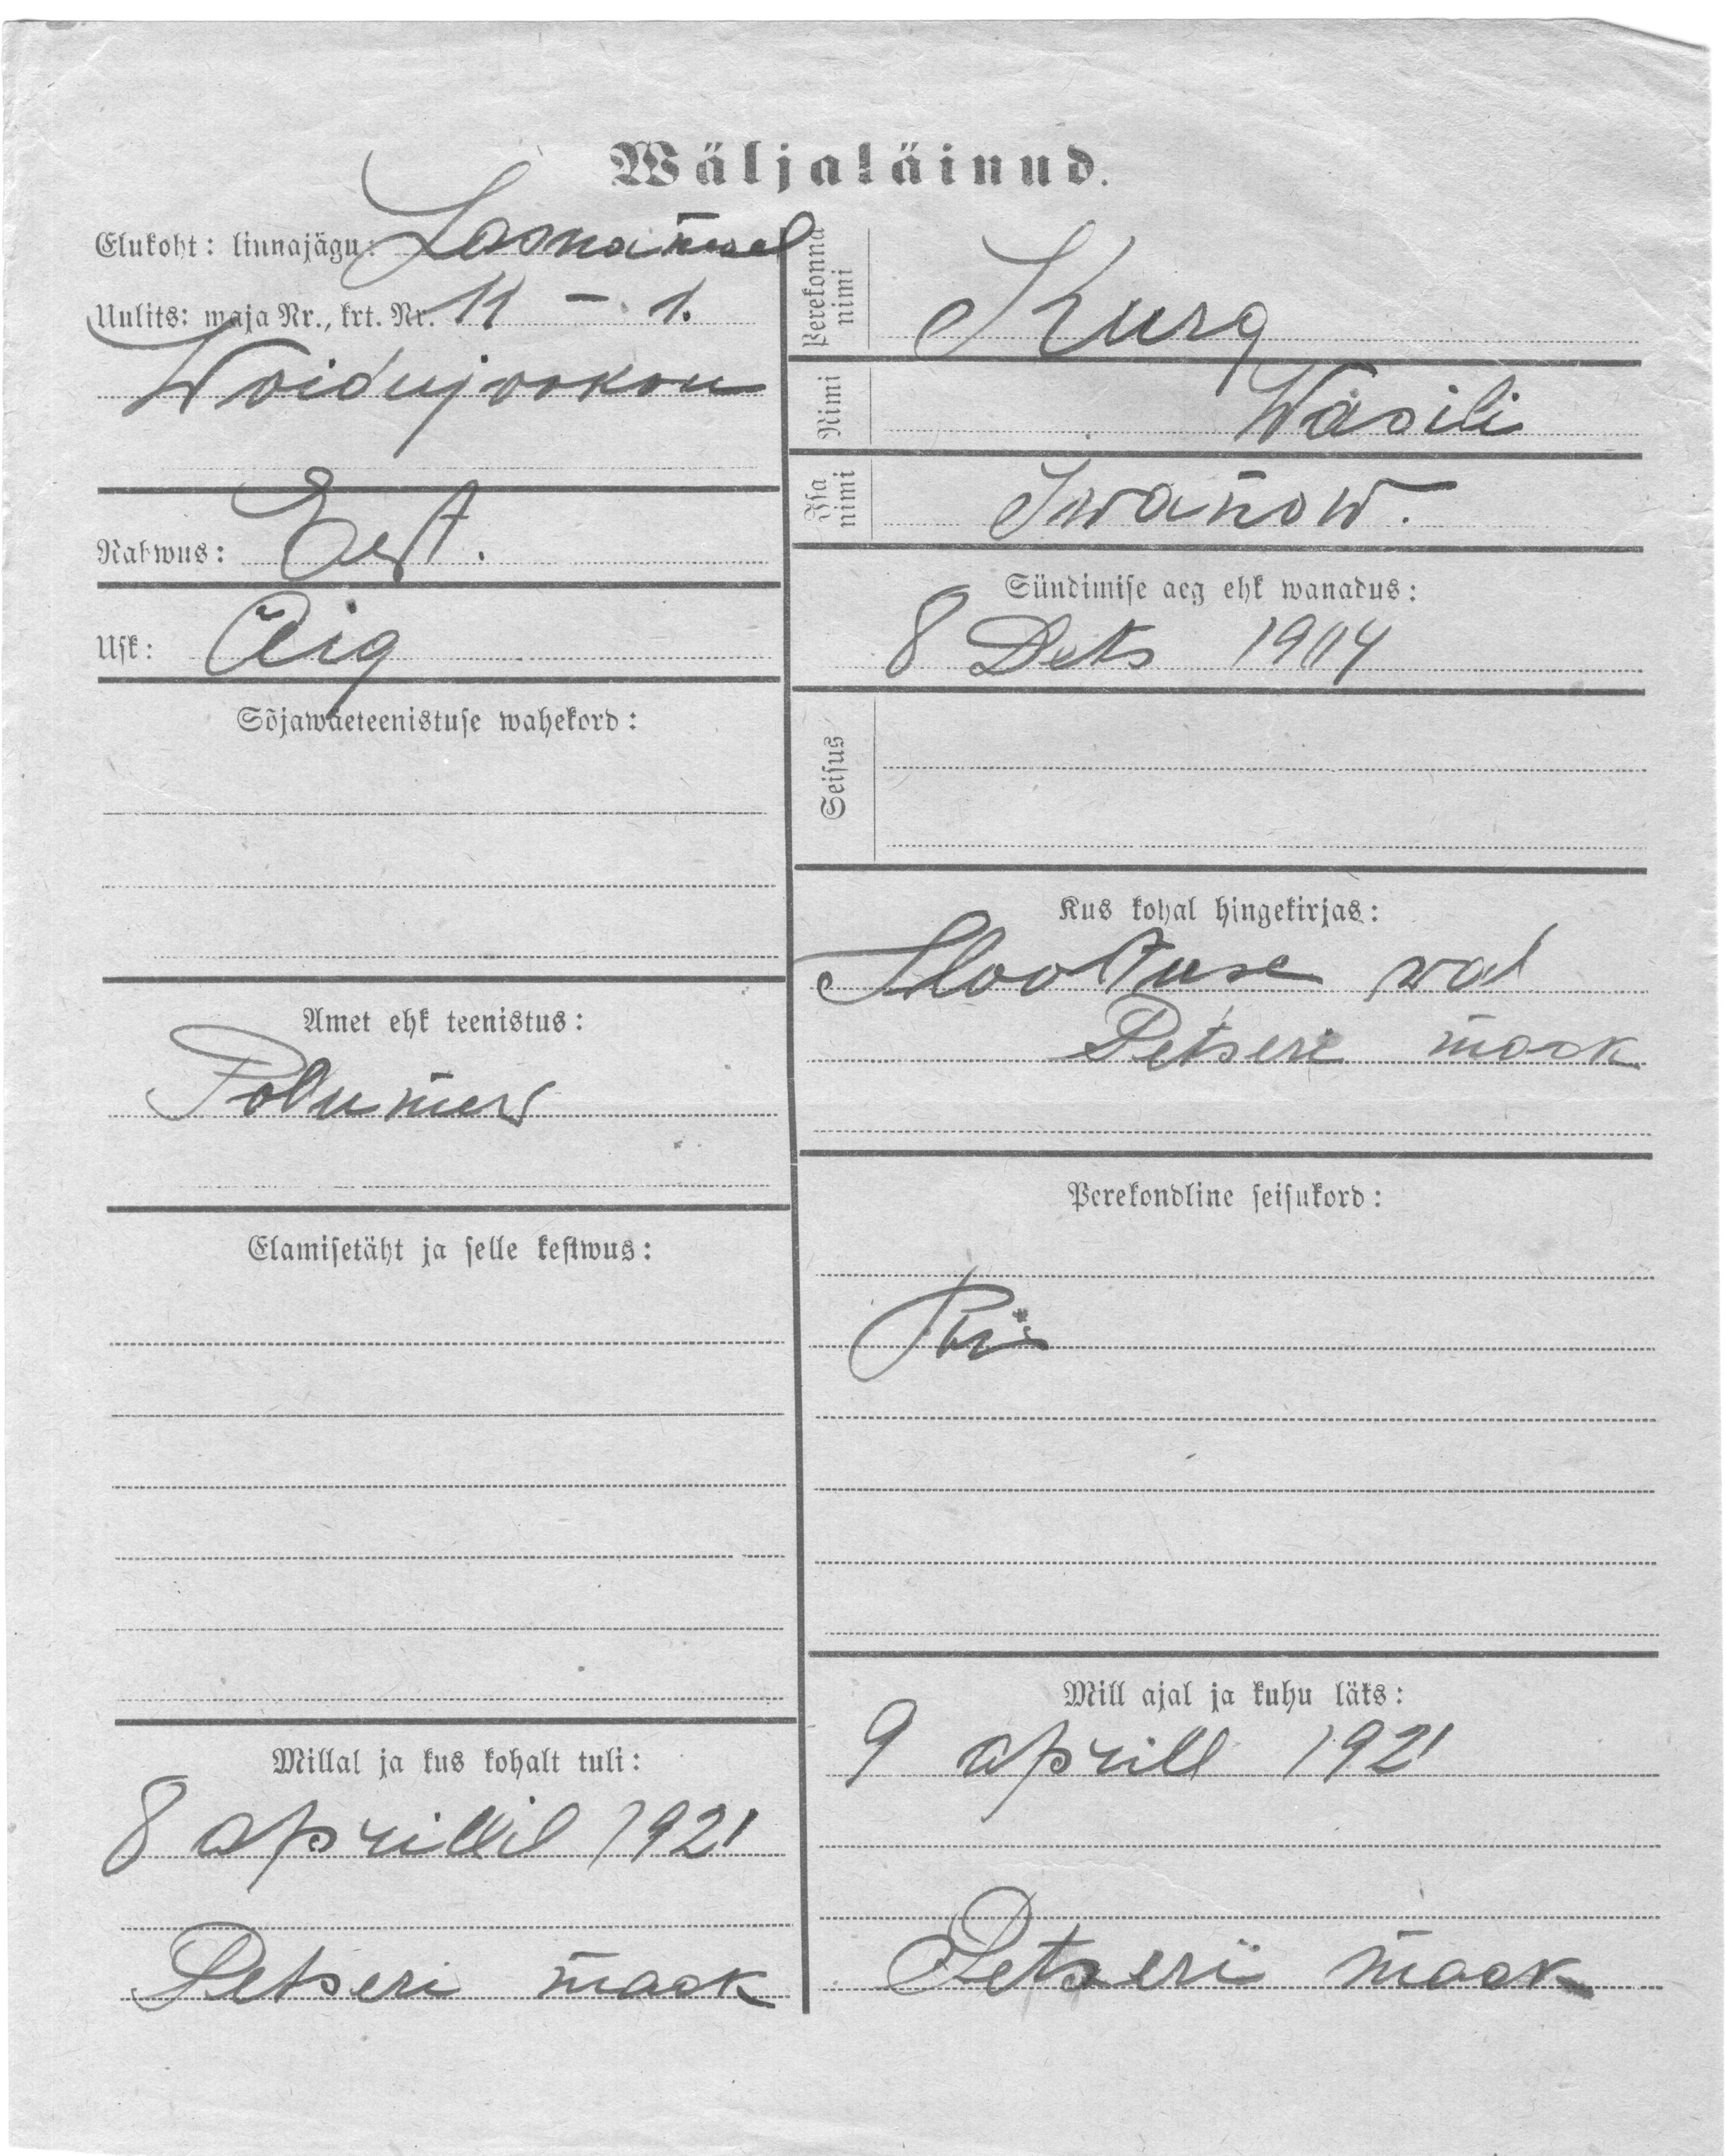 Wäljaläinud.
Elukoht: linnajägu: Lasnamäel
Uulits: maja Nr., krt. Nr. 11 – 1.
Woidujooksu
Rahwus: Eest.
Usk: Õig
Sõjawäeteenistuse wahekord:
Amet ehk teenistus:
Põllumees
Elamisetäht ja selle kestwus:
Millal ja kus kohalt tuli:
8 aprillil 1921
Petseri maak
Perekonna nimi
Kurg
Nimi
Wasili
Isa nimi
Iwanow.
Sündimise aeg ehk wanadus:
8 Dets 1904
Seisus
Kus kohal hingekirjas:
Slobotuse wal
Petseri maak
Perekondline seisukord:
Mill ajal ja kuhu läks:
9 aprill 1921
Petseri maak